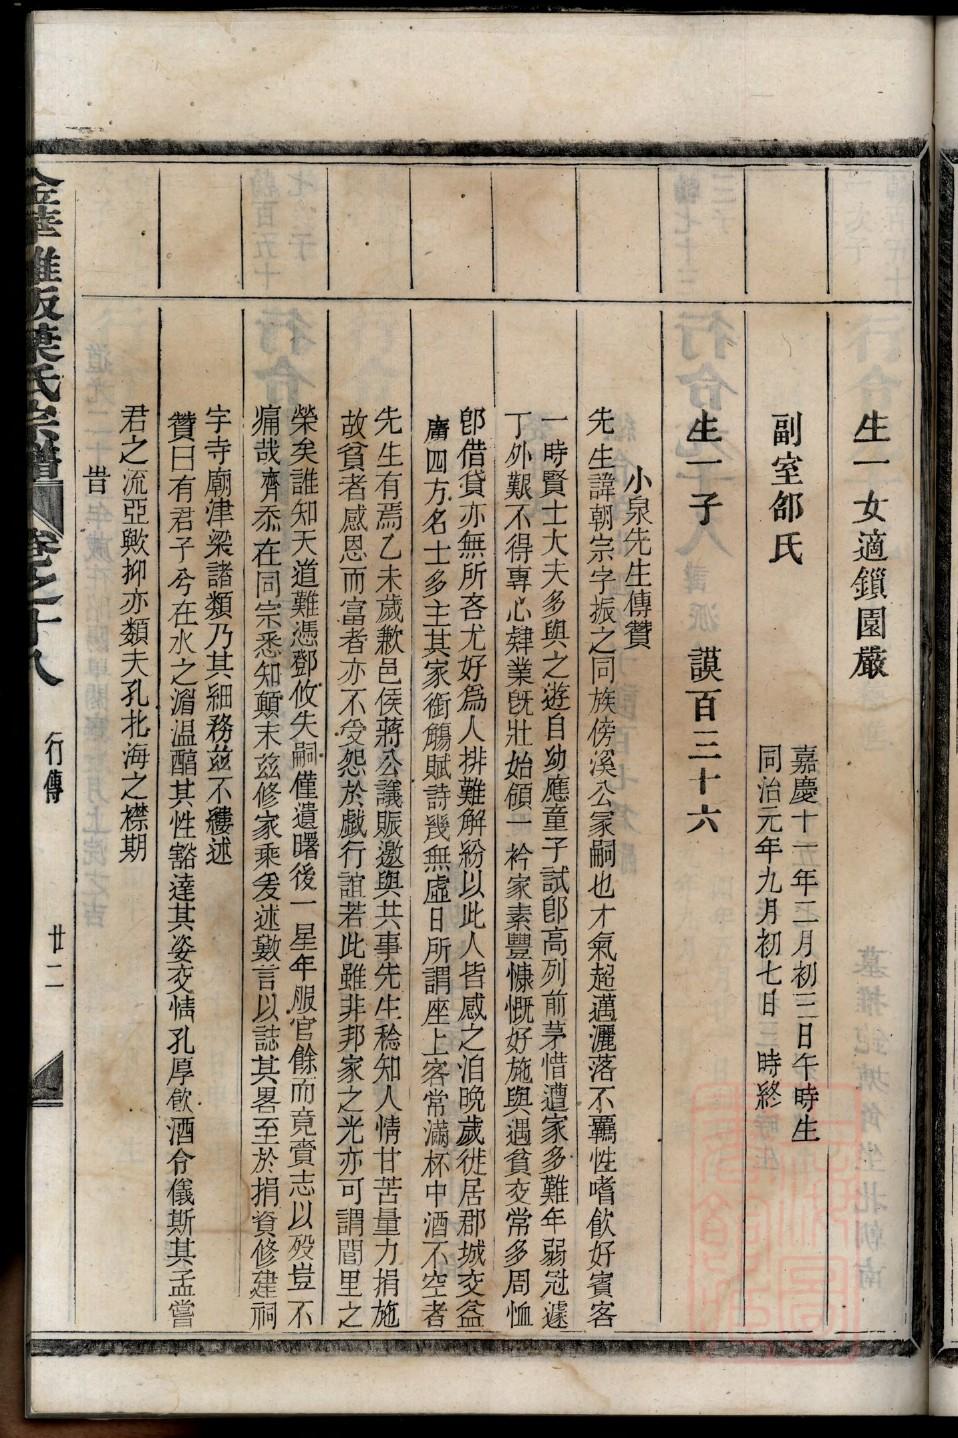 生一女適鎖園嚴
副室郤氏
嘉慶十一年二月初三日午時生
同治元年九月初七日三時終
生一子 謨百三十六
小泉先生傳贊
先生諱朝宗字振之同族傍溪公冢嗣也才氣超邁灑落不羈性嗜飲好賓客
一時賢士大夫多與之遊自幼應童子試卽高列前茅惜遭家多難年弱冠遽
丁外艱不得專心肄業旣壯始領一衿家素豐慷慨好施與遇貧交常多周恤
卽借貸亦無所吝尤好爲人排難解紛以此人皆感之洎晩歲徙居郡城交益
廣四方名士多主其家銜觴賦詩幾無虛日所謂座上客常滿杯中酒不空者
先生有焉乙未歲歉邑侯蔣公議賑邀與共事先生稔知人情甘苦量力捐施
故貧者感恩而富者亦不受怨於戲行誼若此雖非邦家之光亦可謂閭里之
榮矣誰知天道難憑鄧攸失嗣僅遺曙後一星年服官餘而竟賫志以歿豈不
痛哉齊忝在同宗悉知顛末茲修家乘爰述數言以誌其畧至於捐資修建祠
宇寺廟津梁諸類乃其細務茲不縷述
贊曰有君子兮在水之湄温醕其性豁達其姿交情孔厚飲酒令儀斯其孟嘗
君之流亞歟抑亦類夫孔北海之襟期
旹
金華雅畈葉氏宗譜 卷之十八 行傳 廿二